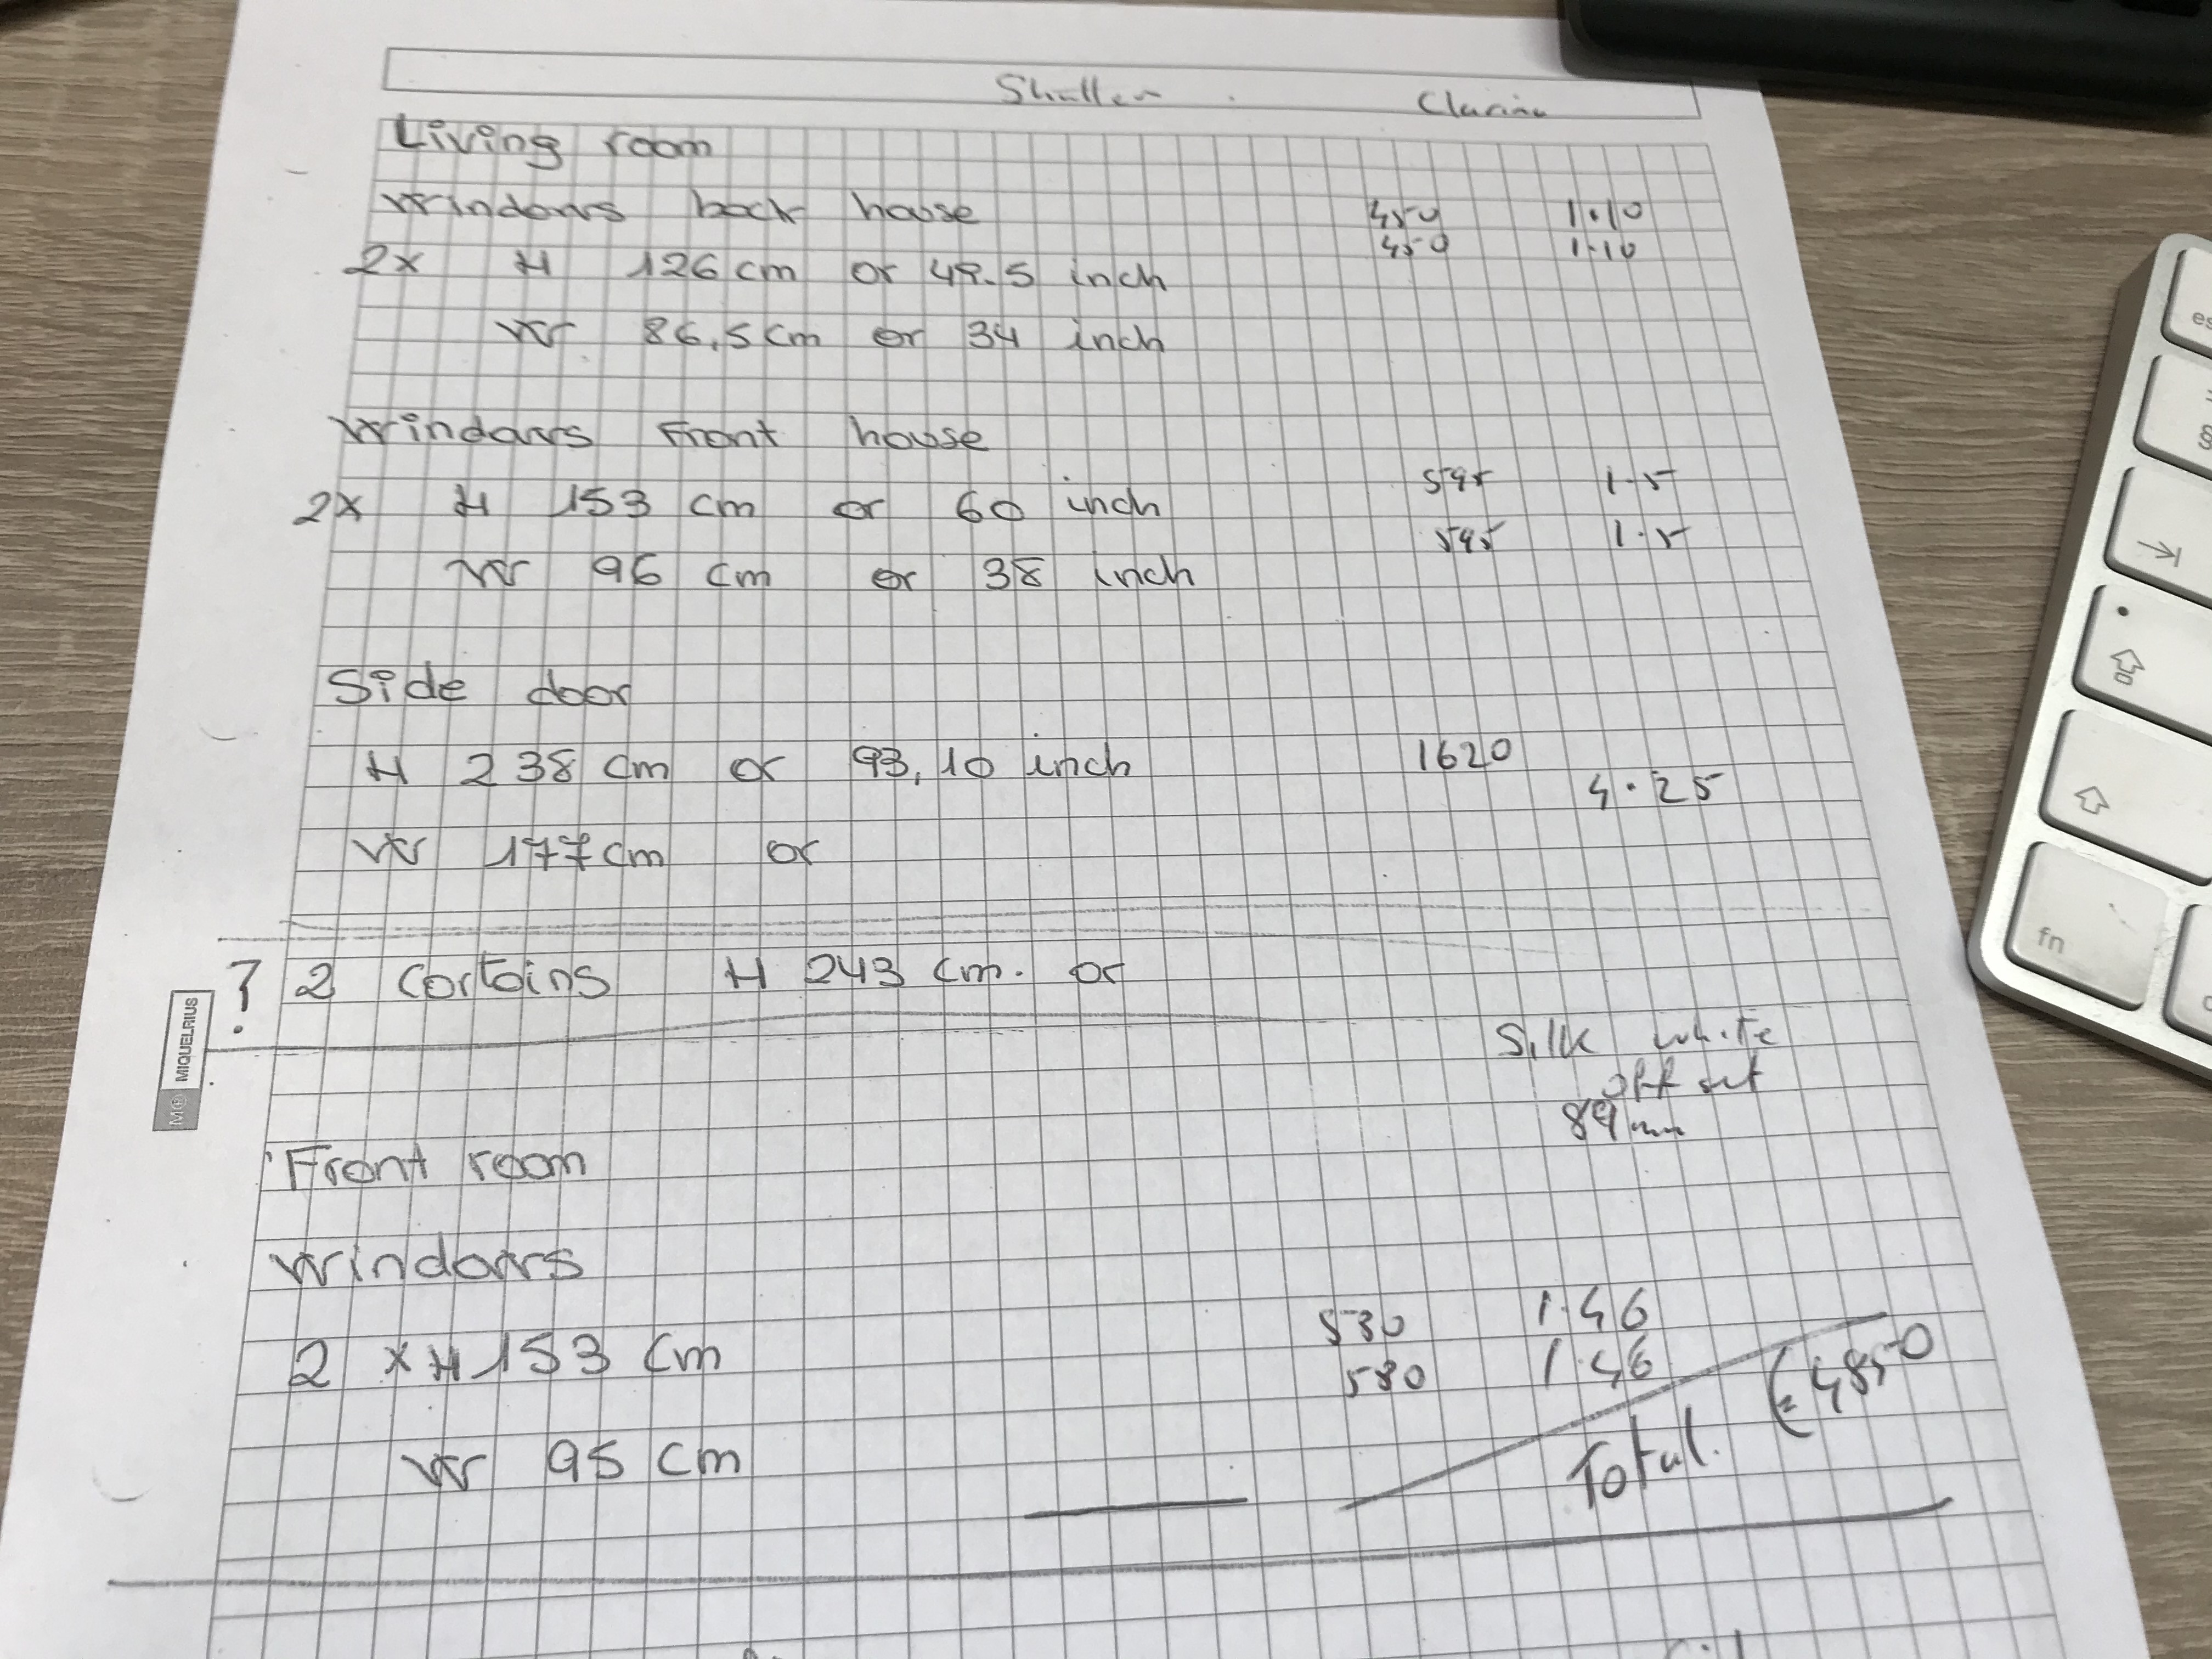 Shutter Clarina
Living room
Windows back house 450 1.10
450 1.10
2x H 126 cm or 49.5 inch
W 86,5 cm or 34 inch
Windows Front house
595 1.5
2x H 153 cm or 60 inch
595 1.5
W 96 cm or 38 inch
Side door
H 238 cm or 93,10 inch 1620
4.25
W 177 cm or
? 2 Cortains H 243 cm. or
MIQUELRIUS
Silk white
off set
89mm
Front room
Windows
530 1.46
2 x H 153 cm 580 1.46
£4850
Total.
W 95 cm
es
§
fn